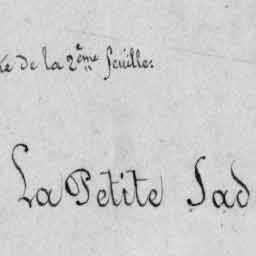 de la 2ème feuille.
La Petite Sad